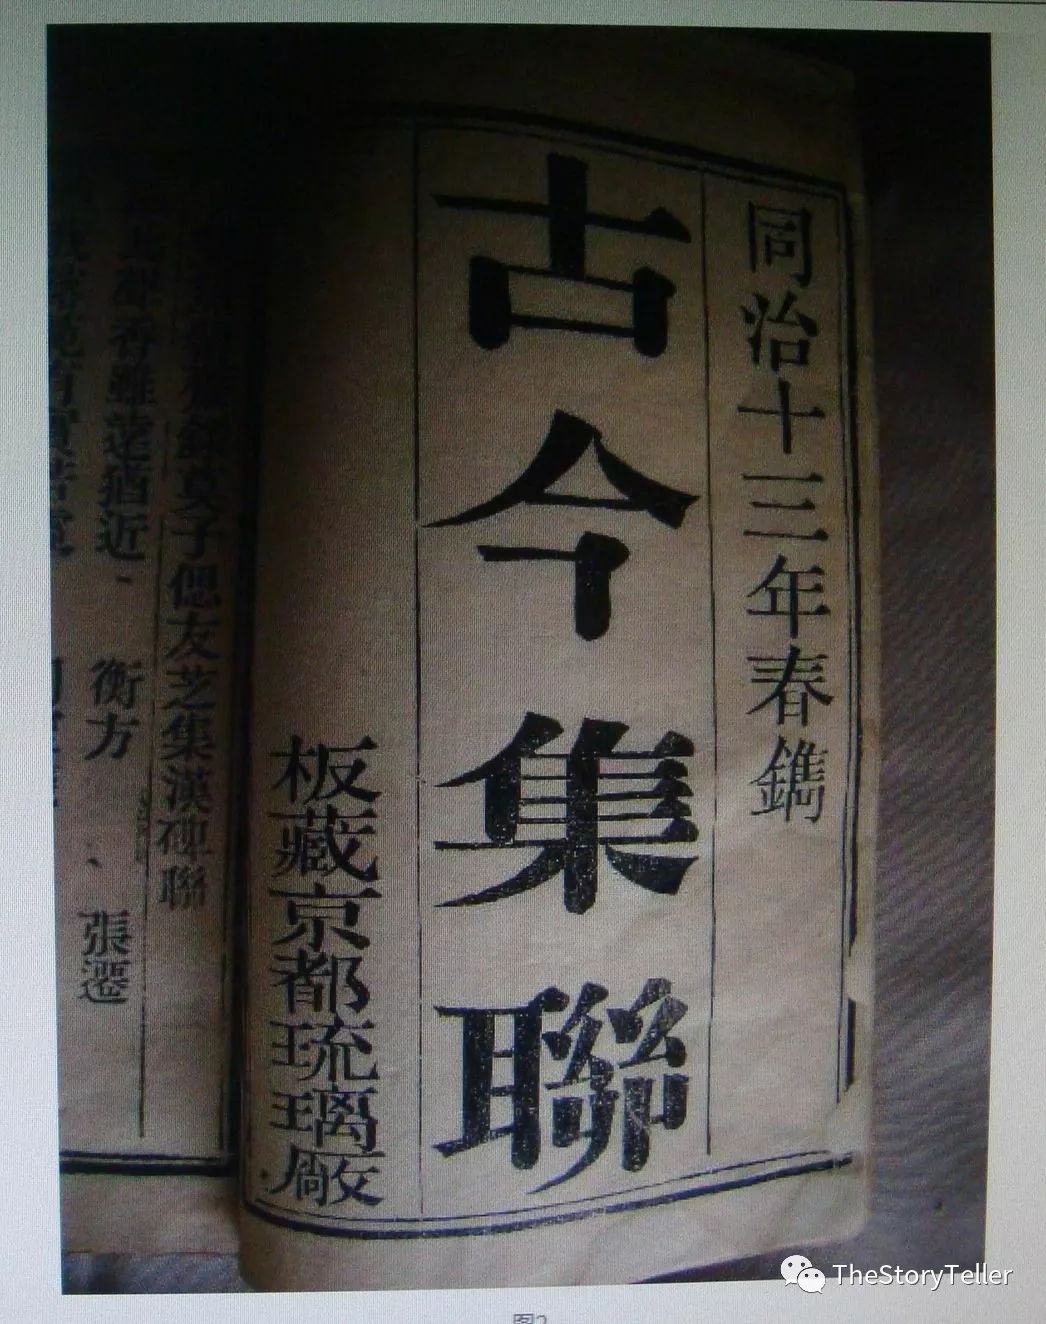 同治十三年春鐫
古今集聯
板藏京都琉璃廠
莫子偲友芝集漢碑聯
香雖遠猶近 衡方
張遷
TheStoryTeller
图2